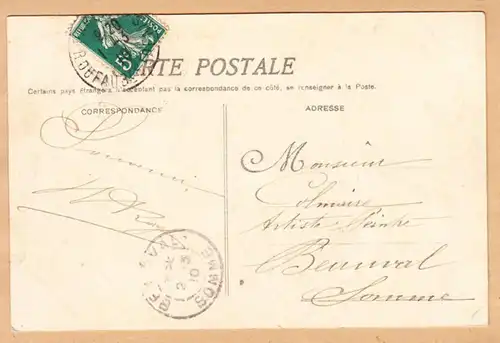 CARTE POSTALE
Certains pays étrangers n'acceptant pas la correspondance de ce côté, se renseigner à la Poste.
CORRESPONDANCE
ADRESSE
Souvenir
Monsieur
Colmaire
Artiste Peintre
Beauval
Somme
BEAUVAL
SOMME
12 -3
10
5